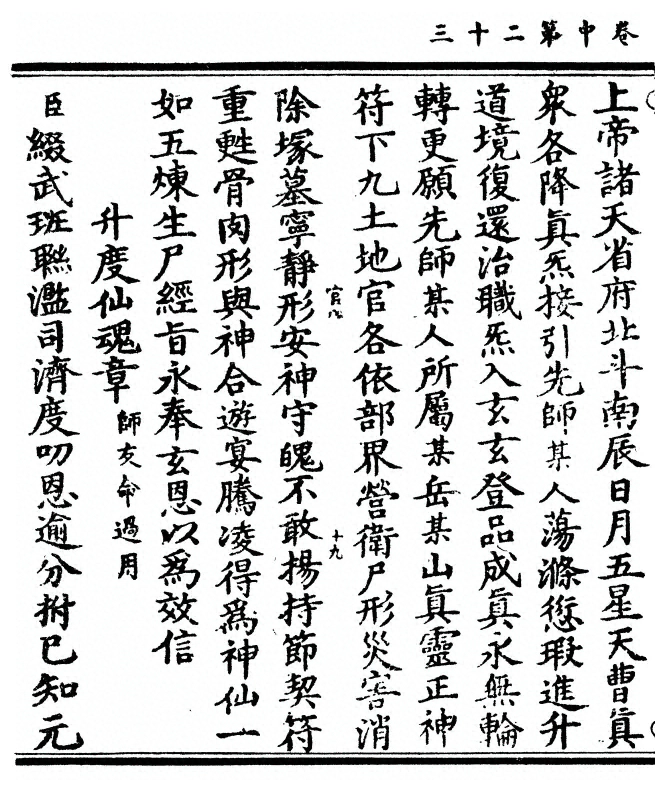 卷中第二十三
上帝諸天省府北斗南辰日月五星天曹眞
衆各降眞炁接引先師某人蕩滌愆瑕進升
道境復還治職炁入玄玄登品成眞永無輪
轉更願先師某人所屬某岳某山眞靈正神
符下九土地官各依部界營衛尸形災害消
除塚墓寧靜形安神守魄不敢揚持節契符
重甦骨肉形與神合遊宴騰凌得爲神仙一
如五煉生尸經旨永奉玄恩以爲效信
升度仙魂章 師友命過用
臣綴武班聯濫司濟度叨恩逾分揣己知元
十九